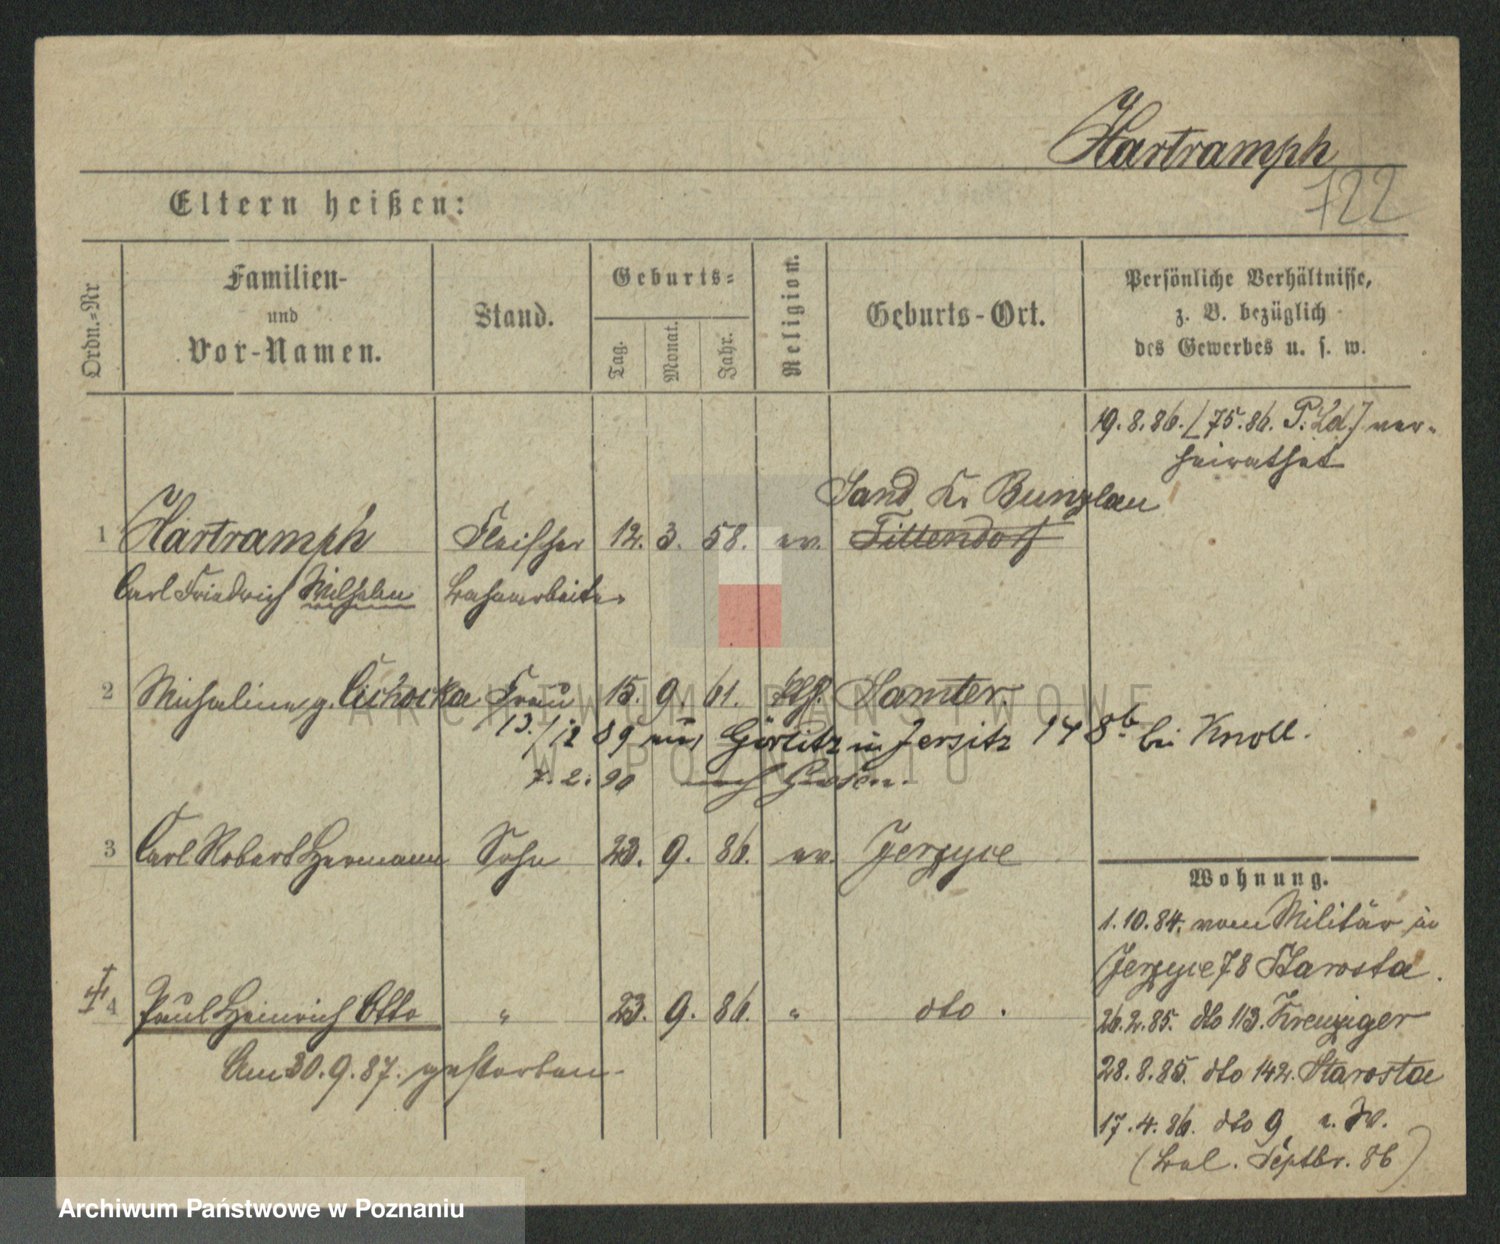 Hartramph
722
Eltern heißen:
Ordn.-Nr
Familien-
und
Vor-Namen.
Stand.
Geburts-
Tag.
Monat.
Jahr.
Religion.
Geburts-Ort.
Persönliche Verhältnisse,
z. B. bezüglich
des Gewerbes u. s. w.
19. 8. 86. [75. 86. P. Ld.] ver-
heirathet
Sand Kr. Bunzlau
1 Hartramph Fleischer 12. 3. 58. ev. Tillendorf
Carl Friedrich Wilhelm Bahnarbeiter
2 Michalina g. Cichocka Frau 15. 9. 61. kth. Samter.
13./12 89 aus Görlitz in Jersitz 148b bei Knoll.
7. 2. 90 nach Posen.
3 Carl Robert Hermann Sohn 23. 9. 86. ev. Jerzyce
Wohnung.
1. 10. 84. vom Militär in
Jerzyce 78 Starosta.
4 Paul Heinrich Otto " 23. 9. 86. " dto.
26. 2. 85. dto 113. Kreuziger
Am 30. 9. 87. gestorben.
28. 8. 85. dto 142. Starosta
17. 4. 86. dto 9 a. W.
(Bal. Septbr. 86)
ARCHIWUM PAŃSTWOWE
W POZNANIU
Archiwum Państwowe w Poznaniu